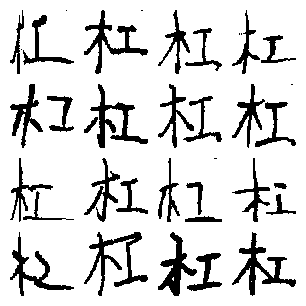 杠杠杠杠
杠杠杠杠
杠杠杠杠
杠杠杠杠